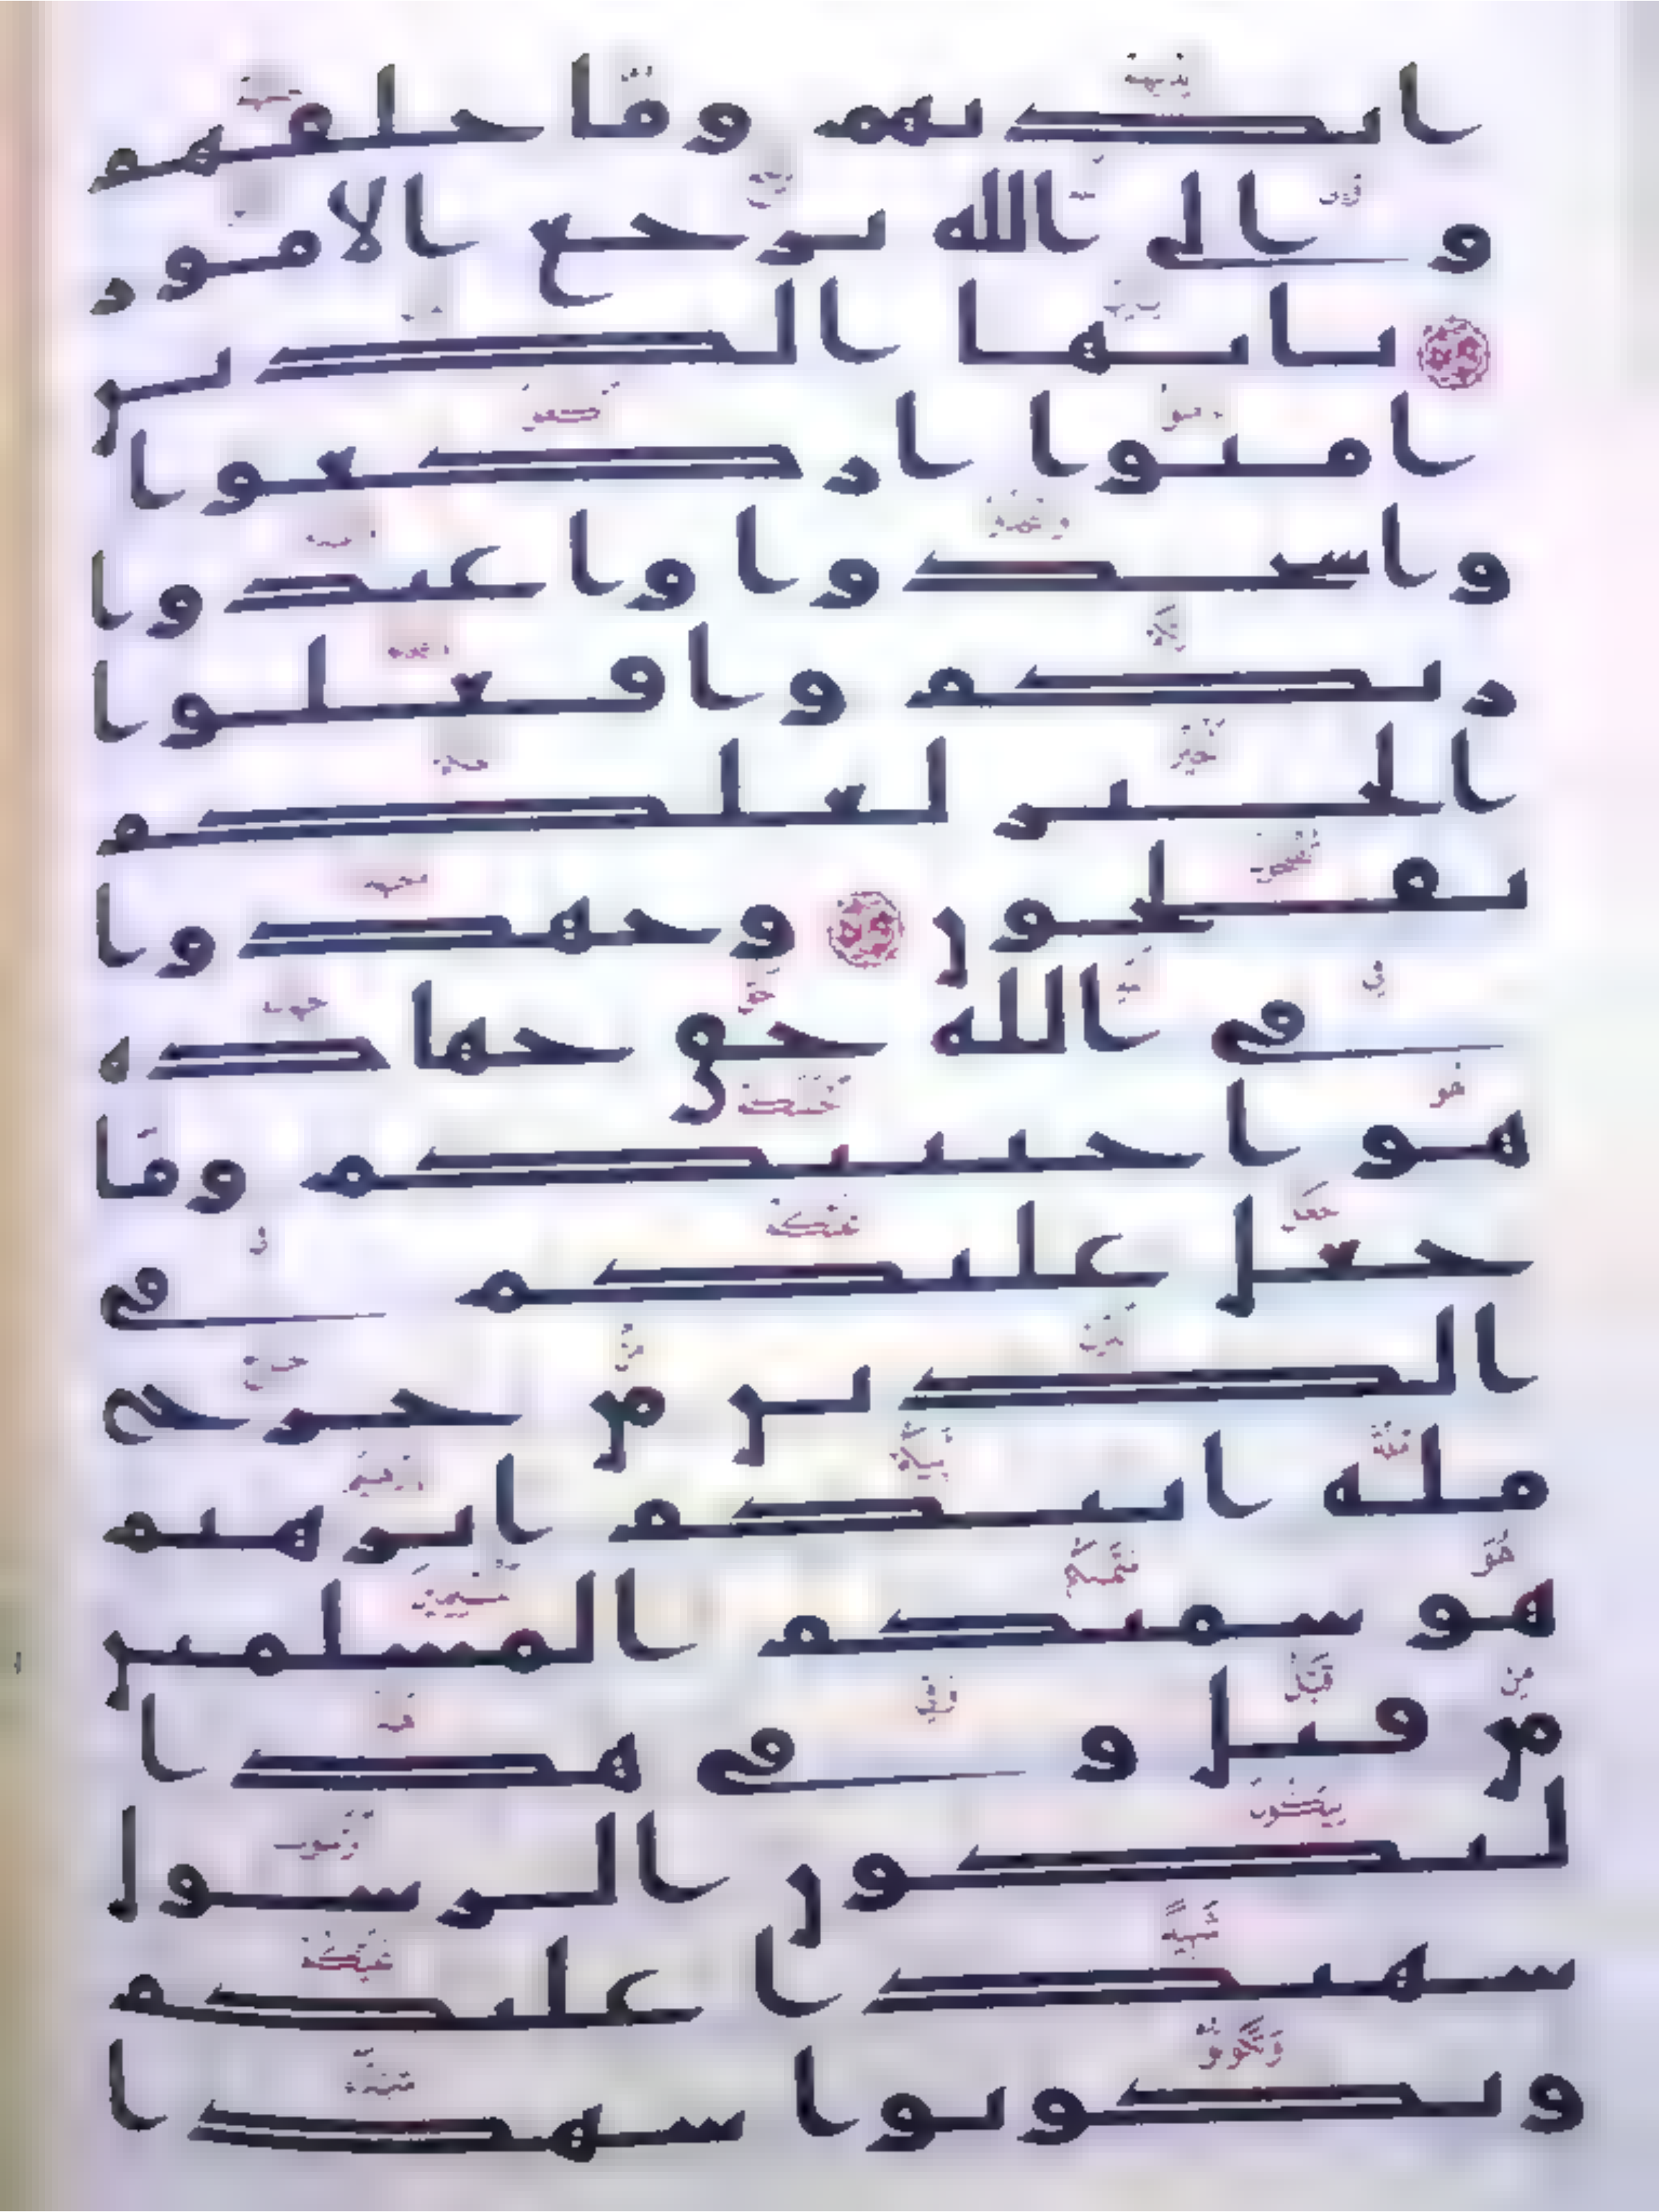 ايديهم وما خلفهم
والى الله ترجع الامور
يايها الذين
امنوا اركعوا
واسجدوا واعبدوا
ربكم وافعلوا
الخير لعلكم
تفلحون وجهدوا
في الله حق جهاده
هو اجتبيكم وما
جعل عليكم في
الدين من حرج
ملة ابيكم ابرهيم
هو سميكم المسلمين
من قبل وفي هذا
ليكون الرسول
شهيدا عليكم
وتكونوا شهدا